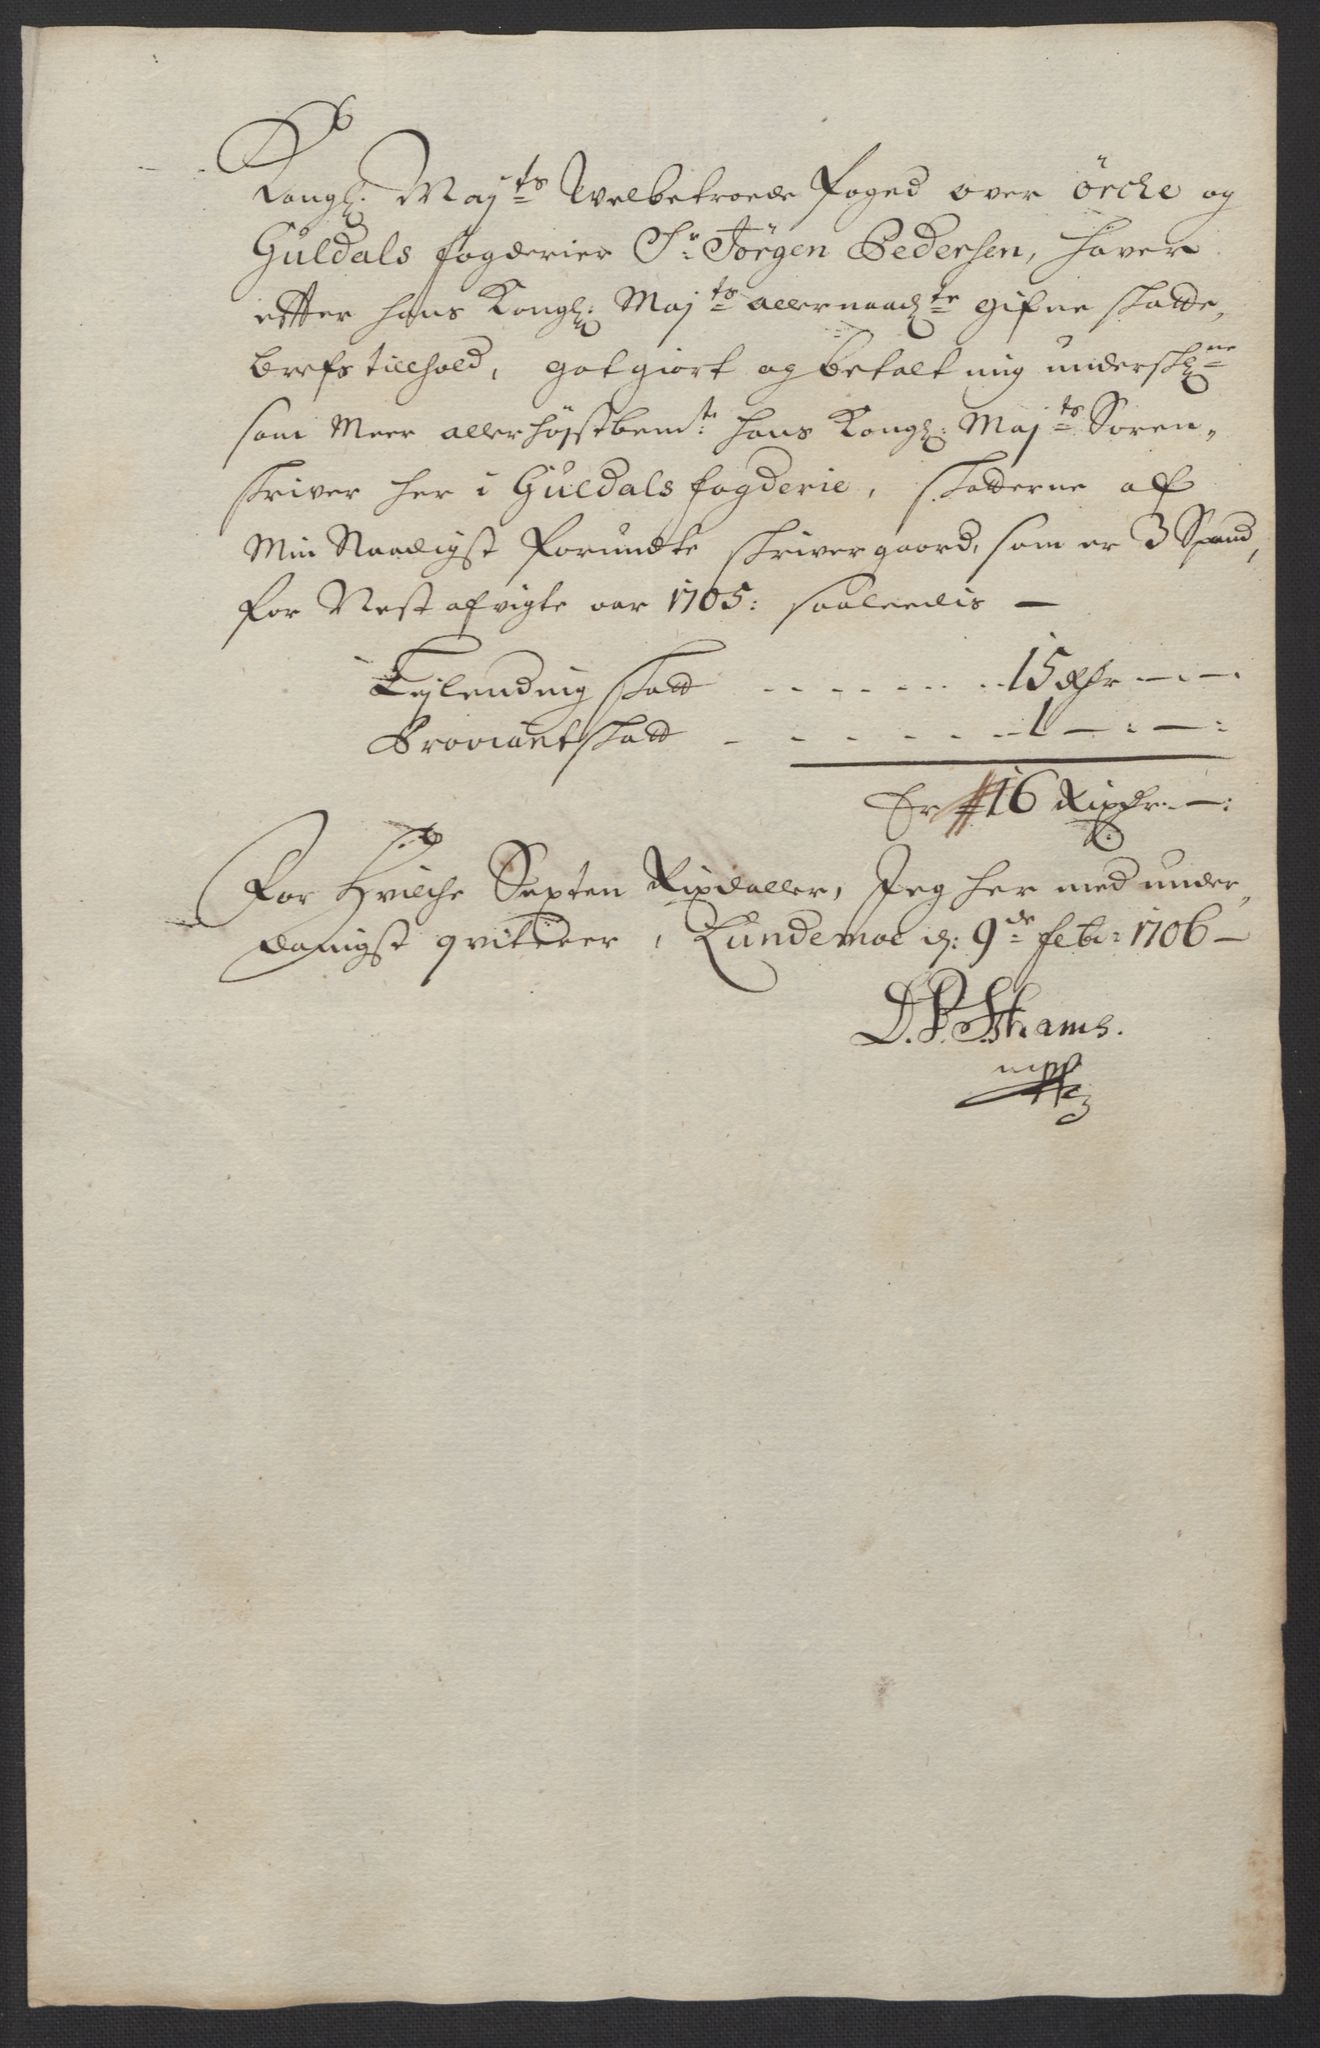 Kongl: Maj:ts Welbetroede foged over örche og
Guldals fogderier Sr: Jörgen Pedersen, haver
efter hans Kongl: Maj:ts allernaad:te gifne skatte,
brefs tilhold, got giort og betalt mig underskl:ne
som Meer allerhöjstbem:te hans Kongl: Maj:ts Soren-
skriver her i Guldals fogderie, skatterne af
Min Naadigst forundte skrivergaord, som er 3 Spand,
for Nest afvigte aar 1705: saaledis —
Lejlending skatt - - - - - - - 15 Rdr — - — -
Proviantskatt - - - - - - - 1 — : — :
Er 16 Rixdr. — :
For hvilche Sexten Rixdaller, Jeg her med under,
danigst qvitterer, Lundemoe d: 9:de feb: 1706 —
D. P. Schrams.
mpp